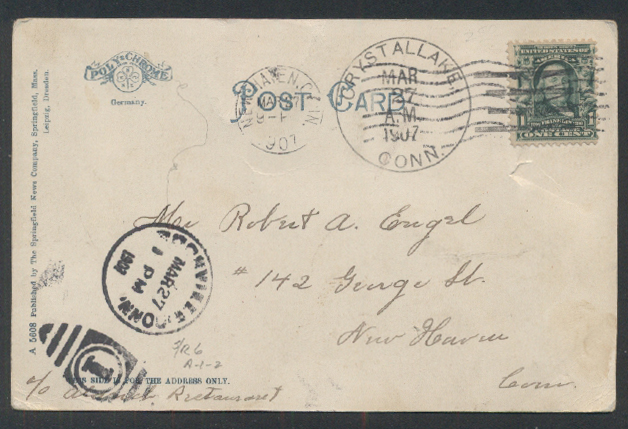 POLY-CHROME
Germany.
POST CARD
NEW HAVEN, CONN.
MAR
1907
CRYSTALLAKE,
MAR
27
A.M.
1907
CONN.
UNITED STATES OF AMERICA
1 ONE CENT 1
A 5608 Published by The Springfield News Company, Springfield, Mass.
Leipzig, Dresden.
Robert A. Engel
# 142 George St.
New Haven
Conn.
ROCKVILLE, CONN.
MAR 27
1 PM
1907
1
A-1-2
THIS SIDE IS FOR THE ADDRESS ONLY.
c/o
Restaurant